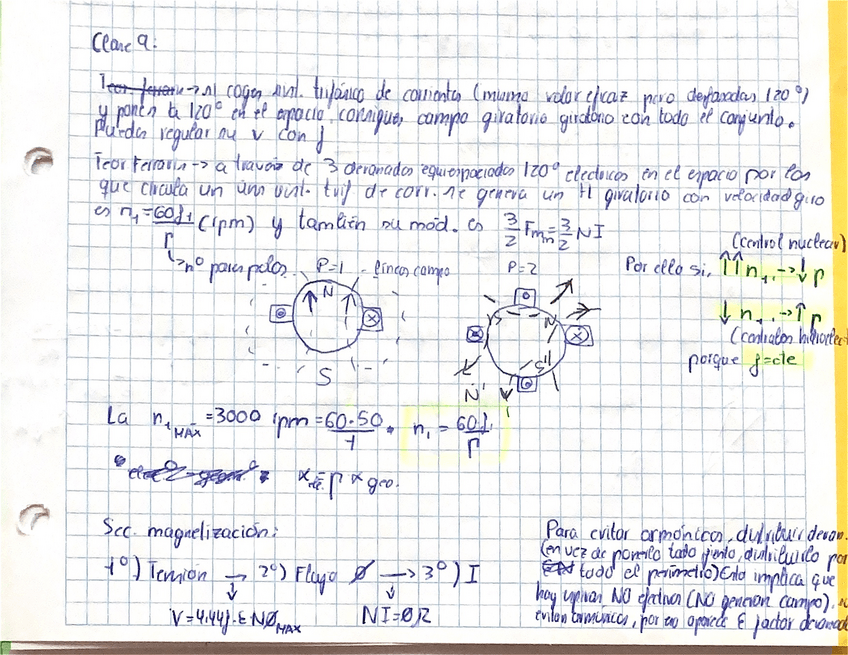 Clase 9:
Teor ferraris -> si coges sist. trifásico de corrientes (mismo valor eficaz pero desfasadas 120°)
y pones a 120° en el espacio, consigues campo giratorio giratorio con todo el conjunto.
Puedes regular su v con f
Teor Ferraris -> a través de 3 devanados equiespaciados 120° electricos en el espacio por los
que circula un sist. trif de corr. se genera un H giratorio con velocidad giro
es n₁ = 60f₁/P (rpm) y también su mód. es 3/2 Fm = 3/2 NI
↳ nº pares polos
P=1
líneas campo
P=2
N
S
S
N
N'
S'
(control nuclear)
Por ello si, ↑↑ n₁ -> ↓ P
↓ n₁ -> ↑ P
(centrales hidroeléct
porque f=cte
La n₁MAX = 3000 rpm = 60·50/1. n₁ = 60f₁/P
αele = P αgeo.
Sec. magnetización:
1°) Tensión -> 2°) Flujo Ø -> 3°) I
V=4.44f·ξNØMAX
NI=ØR
Para evitar armónicos, distribuir devan.
(en vez de ponerlo todo junto, distribuirlo por
todo el perímetro) Esto implica que
hay espiras NO efectivas (NO generan campo),
evitan armónicos, por eso aparece ξ factor devanado